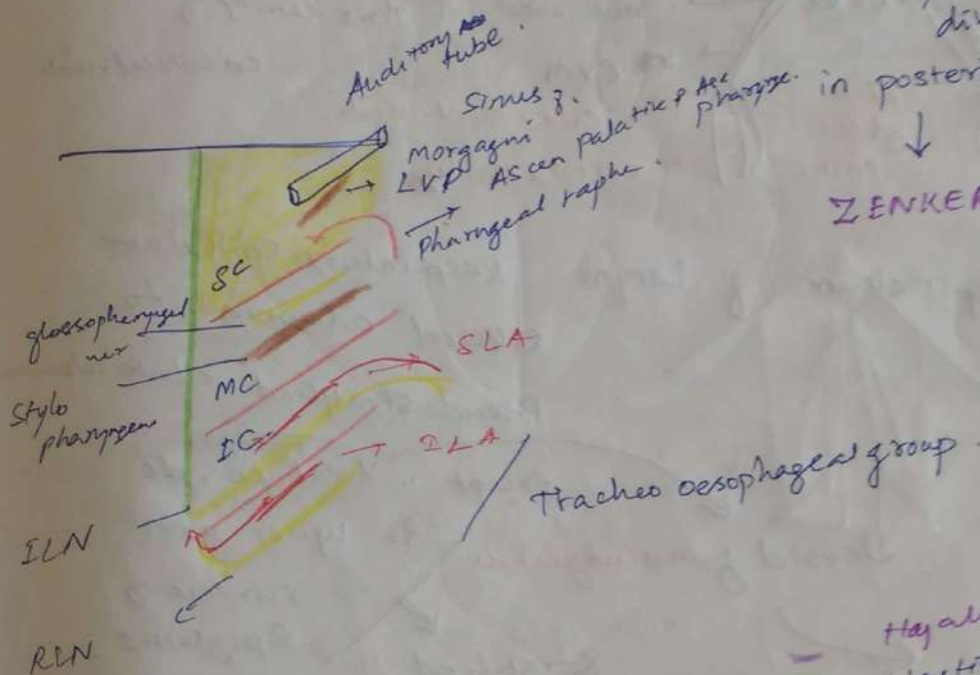 Auditory
tube.
Sinus of
Morgagni
LVP Ascen palatine &
pharynge.
Pharyngeal raphe.
in posteri
ZENKER
SC
glossopharyngeal
Stylo
pharyngeus
MC
IC
SLA
ILA
ILN
RLN
Tracheo oesophageal group